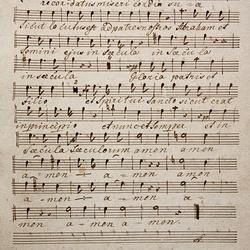 recordatus misericordia su-a
Sicut locutus est ad patres nostros Abraham et
Semini ejus in Sæcula in Sæcula
in sæcula Gloria patri et
filio et Spiritui Sancto sicut erat
in principio et nunc et Semper et in
Sæcula Sæculorum amen amen
a-men a-men amen
a-men a-men a-
men amen a-men.